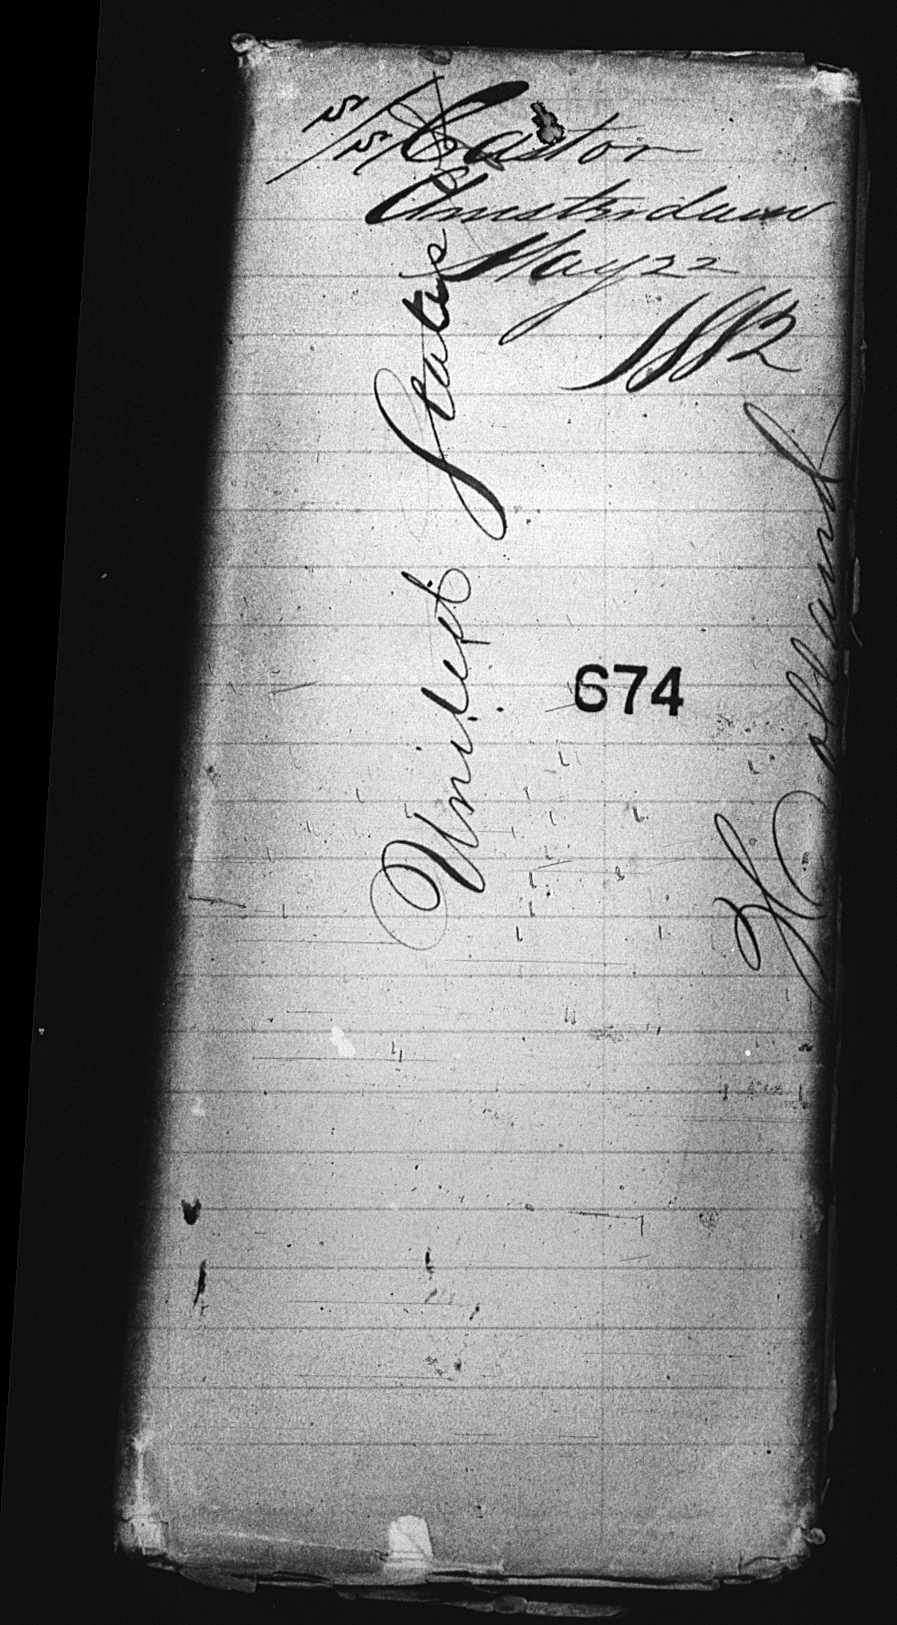 S/S Castor
Amsterdam
May 22
1882
United States
674
Holland